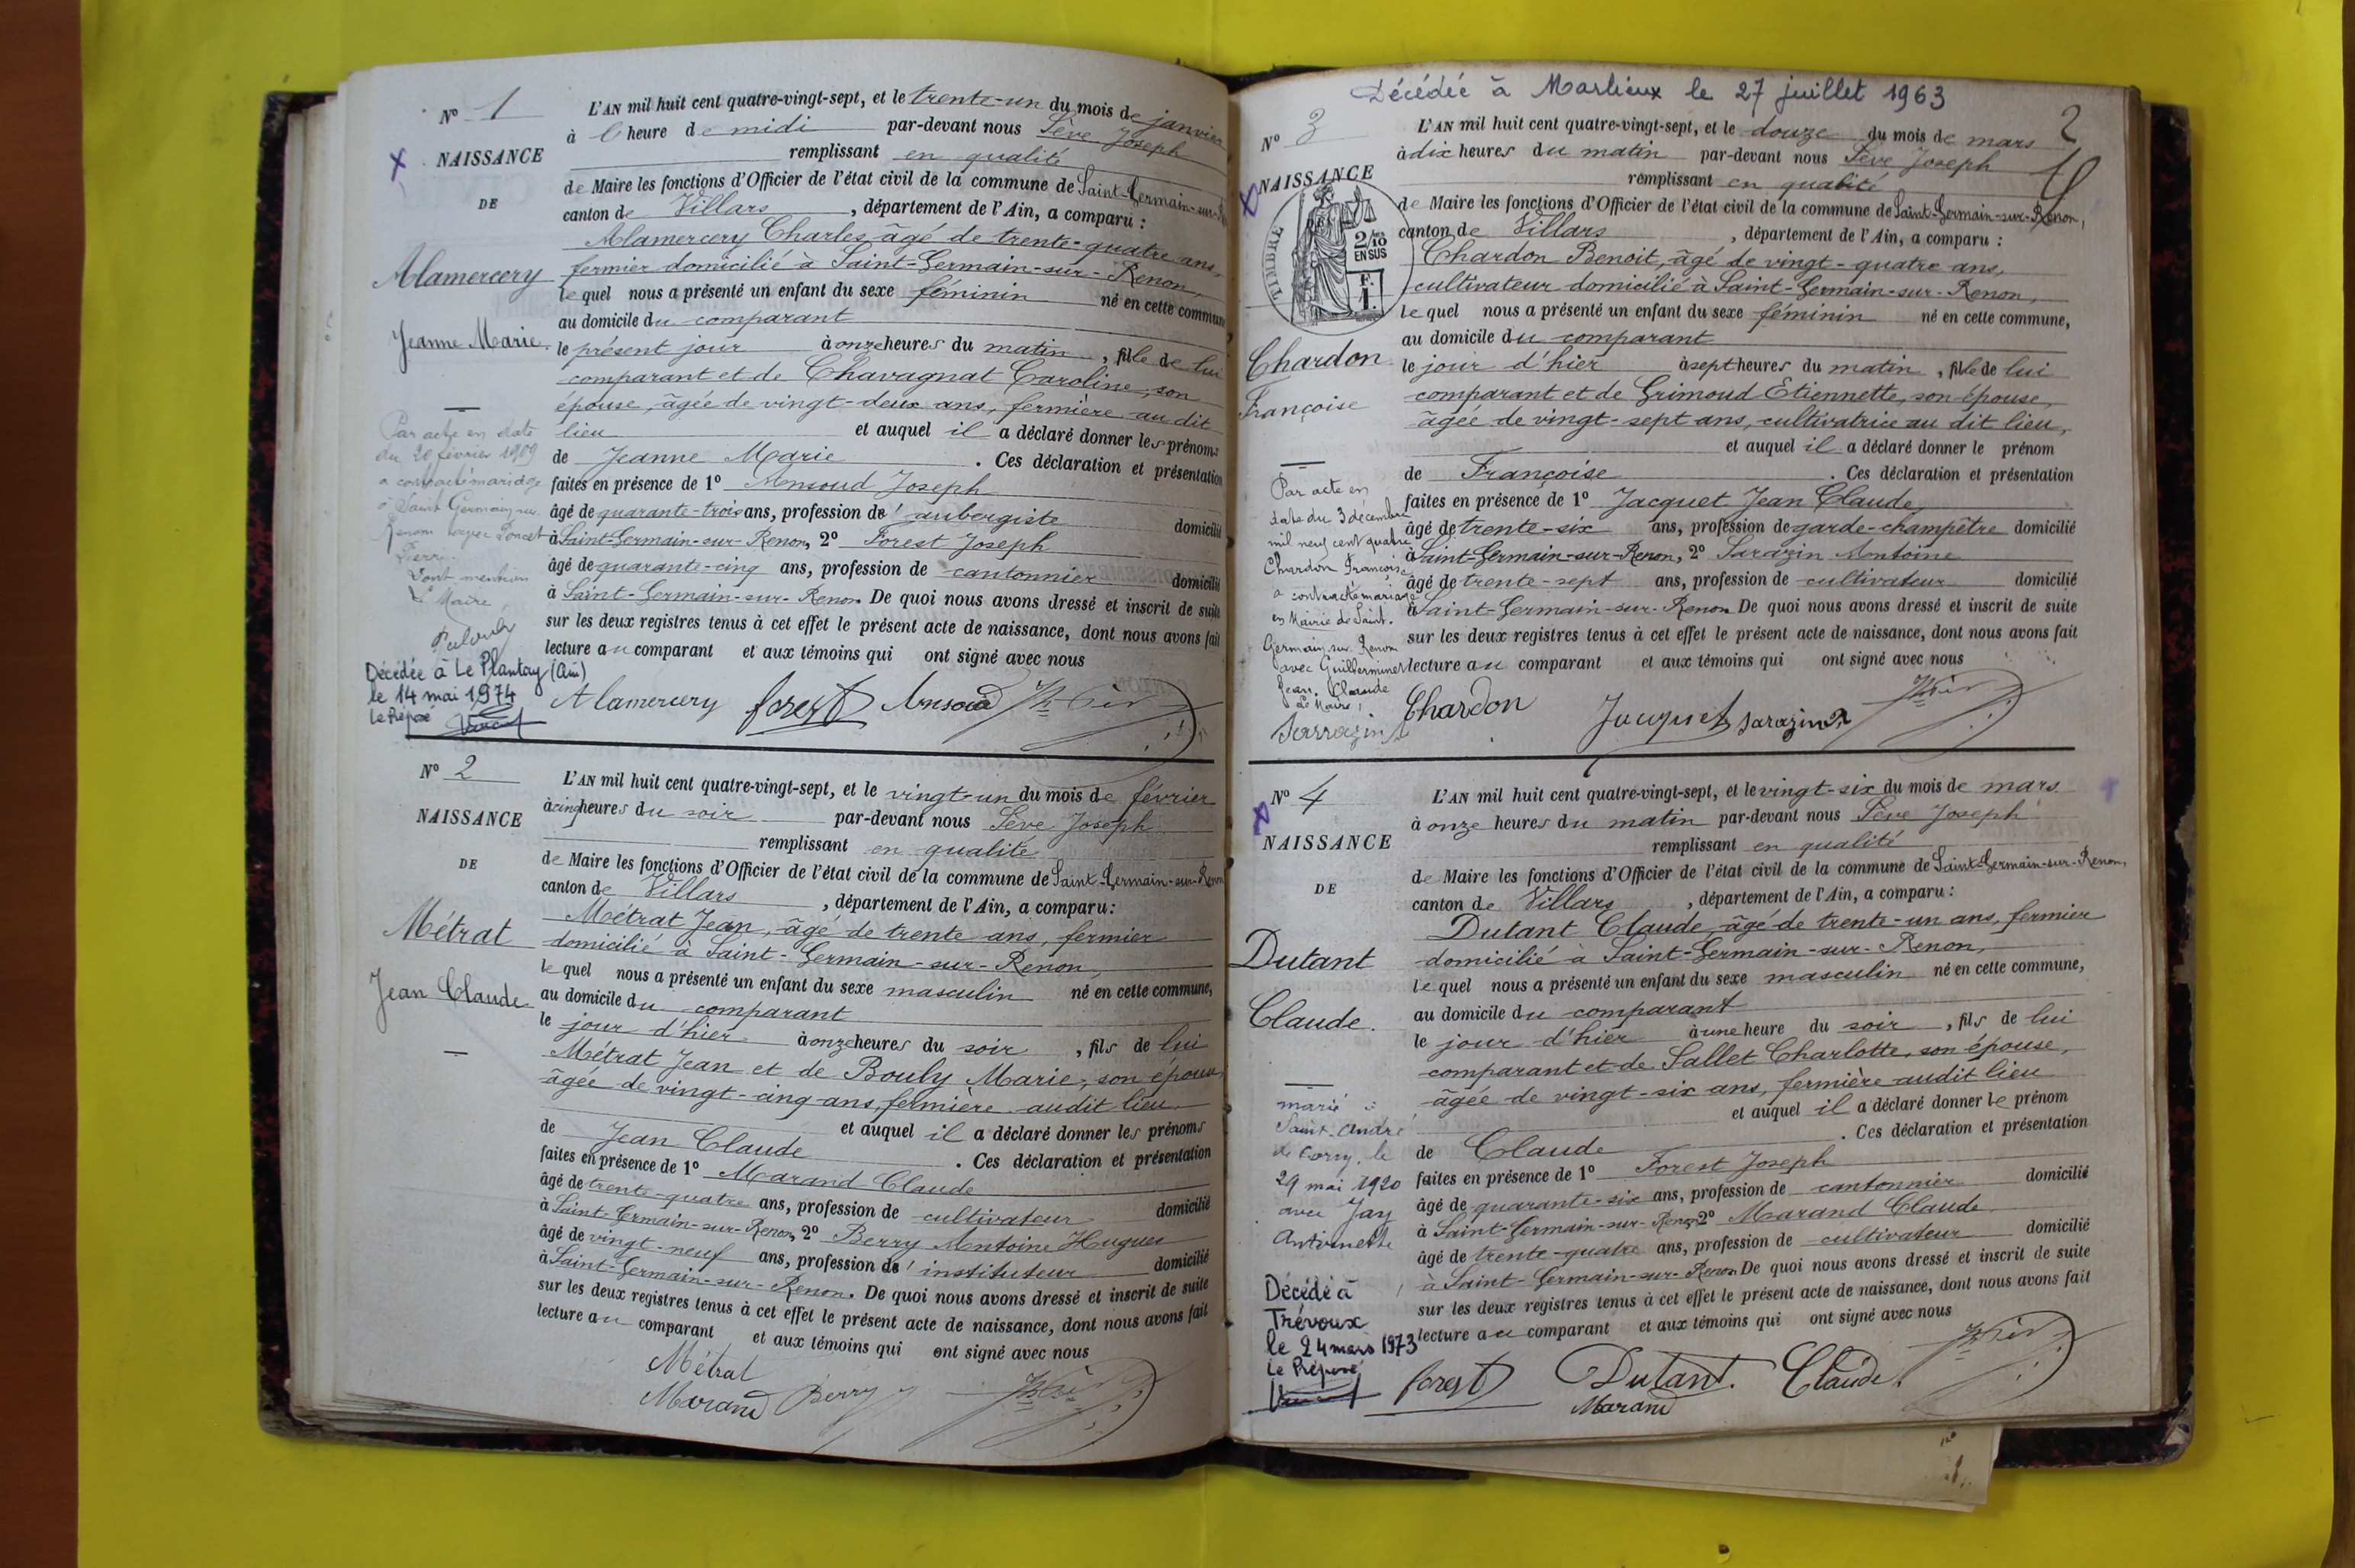 N° 1
NAISSANCE
DE
Alamercery
Jeanne Marie.
Par acte en date
du 20 février 1909
a contracté mariage
à Saint Germain sur
Renom avec Poncet
Pierre
Dont mention
Le Maire,
Décédée à Le Plantay (Ain)
le 14 mai 1974
Le Préposé
L'AN mil huit cent quatre-vingt-sept, et le trente-un du mois de janvier
à l'heure de midi par-devant nous Sève Joseph
remplissant en qualité
de Maire les fonctions d'Officier de l'état civil de la commune de Saint-Germain-sur-R
canton de Villars, département de l'Ain, a comparu :
Alamercery Charles, âgé de trente-quatre ans,
fermier domicilié à Saint-Germain-sur-Renon,
lequel nous a présenté un enfant du sexe féminin né en cette commune
au domicile du comparant
le présent jour à onze heures du matin, fille de lui
comparant et de Chavagnat Caroline, son
épouse, âgée de vingt-deux ans, fermière au dit
lieu et auquel il a déclaré donner les prénoms
de Jeanne Marie. Ces déclaration et présentation
faites en présence de 1° Ansoud Joseph
âgé de quarante-trois ans, profession d'aubergiste domicilié
à Saint-Germain-sur-Renon, 2° Forest Joseph
âgé de quarante-cinq ans, profession de cantonnier domicilié
à Saint-Germain-sur-Renon. De quoi nous avons dressé et inscrit de suite
sur les deux registres tenus à cet effet le présent acte de naissance, dont nous avons fait
lecture au comparant et aux témoins qui ont signé avec nous
Alamercery forest Ansoud
N° 2
NAISSANCE
DE
Métrat
Jean Claude
L'AN mil huit cent quatre-vingt-sept, et le vingt-un du mois de février
à cinq heures du soir par-devant nous Sève Joseph
remplissant en qualité
de Maire les fonctions d'Officier de l'état civil de la commune de Saint-Germain-sur-Renon
canton de Villars, département de l'Ain, a comparu :
Métrat Jean, âgé de trente ans, fermier
domicilié à Saint-Germain-sur-Renon,
lequel nous a présenté un enfant du sexe masculin né en cette commune,
au domicile du comparant
le jour d'hier à onze heures du soir, fils de lui
Métrat Jean et de Bouly Marie, son épouse,
âgée de vingt-cinq ans, fermière audit lieu
et auquel il a déclaré donner les prénoms
de Jean Claude. Ces déclaration et présentation
faites en présence de 1° Marand Claude
âgé de trente-quatre ans, profession de cultivateur domicilié
à Saint-Germain-sur-Renon, 2° Berry Antoine Hugues
âgé de vingt-neuf ans, profession d'instituteur domicilié
à Saint-Germain-sur-Renon. De quoi nous avons dressé et inscrit de suite
sur les deux registres tenus à cet effet le présent acte de naissance, dont nous avons fait
lecture au comparant et aux témoins qui ont signé avec nous
Métrat
Marand Berry
Décédée à Marlieux le 27 juillet 1963
2
N° 3
NAISSANCE
TIMBRE
2/10
EN SUS
F.
1.
Chardon
Françoise
Par acte en
date du 3 décembre
mil neuf cent quatre
Chardon Françoise
a contracté mariage
en Mairie de Saint-
Germain sur Renom
avec Guillerminet
Jean Claude
Le Maire,
Sarrazin
L'AN mil huit cent quatre-vingt-sept, et le douze du mois de mars
à dix heures du matin par-devant nous Sève Joseph
remplissant en qualité
de Maire les fonctions d'Officier de l'état civil de la commune de Saint-Germain-sur-Renon,
canton de Villars, département de l'Ain, a comparu :
Chardon Benoit, âgé de vingt-quatre ans,
cultivateur domicilié à Saint-Germain-sur-Renon,
lequel nous a présenté un enfant du sexe féminin né en cette commune,
au domicile du comparant
le jour d'hier à sept heures du matin, fille de lui
comparant et de Grimoud Etiennette, son épouse,
âgée de vingt-sept ans, cultivatrice au dit lieu,
et auquel il a déclaré donner le prénom
de Françoise. Ces déclaration et présentation
faites en présence de 1° Jacquet Jean Claude,
âgé de trente-six ans, profession de garde-champêtre domicilié
à Saint-Germain-sur-Renon, 2° Sarazin Antoine
âgé de trente-sept ans, profession de cultivateur domicilié
à Saint-Germain-sur-Renon De quoi nous avons dressé et inscrit de suite
sur les deux registres tenus à cet effet le présent acte de naissance, dont nous avons fait
lecture au comparant et aux témoins qui ont signé avec nous
Chardon Jacquet Sarazin
N° 4
NAISSANCE
DE
Dutant
Claude.
marié à
Saint-André
de Corcy, le
29 mai 1920
avec Jay
Antoinette
Décédé à
Trévoux
le 24 mars 1973
Le Préposé
L'AN mil huit cent quatre-vingt-sept, et le vingt-six du mois de mars
à onze heures du matin par-devant nous Sève Joseph
remplissant en qualité
de Maire les fonctions d'Officier de l'état civil de la commune de Saint-Germain-sur-Renon,
canton de Villars, département de l'Ain, a comparu :
Dutant Claude, âgé de trente-un ans, fermier
domicilié à Saint-Germain-sur-Renon,
lequel nous a présenté un enfant du sexe masculin né en cette commune,
au domicile du comparant
le jour d'hier à une heure du soir, fils de lui
comparant et de Sallet Charlotte, son épouse,
âgée de vingt-six ans, fermière audit lieu
et auquel il a déclaré donner le prénom
de Claude. Ces déclaration et présentation
faites en présence de 1° Forest Joseph
âgé de quarante-six ans, profession de cantonnier domicilié
à Saint-Germain-sur-Renon 2° Marand Claude
âgé de trente-quatre ans, profession de cultivateur domicilié
à Saint-Germain-sur-Renon De quoi nous avons dressé et inscrit de suite
sur les deux registres tenus à cet effet le présent acte de naissance, dont nous avons fait
lecture au comparant et aux témoins qui ont signé avec nous
forest Dutant Claude
Marand